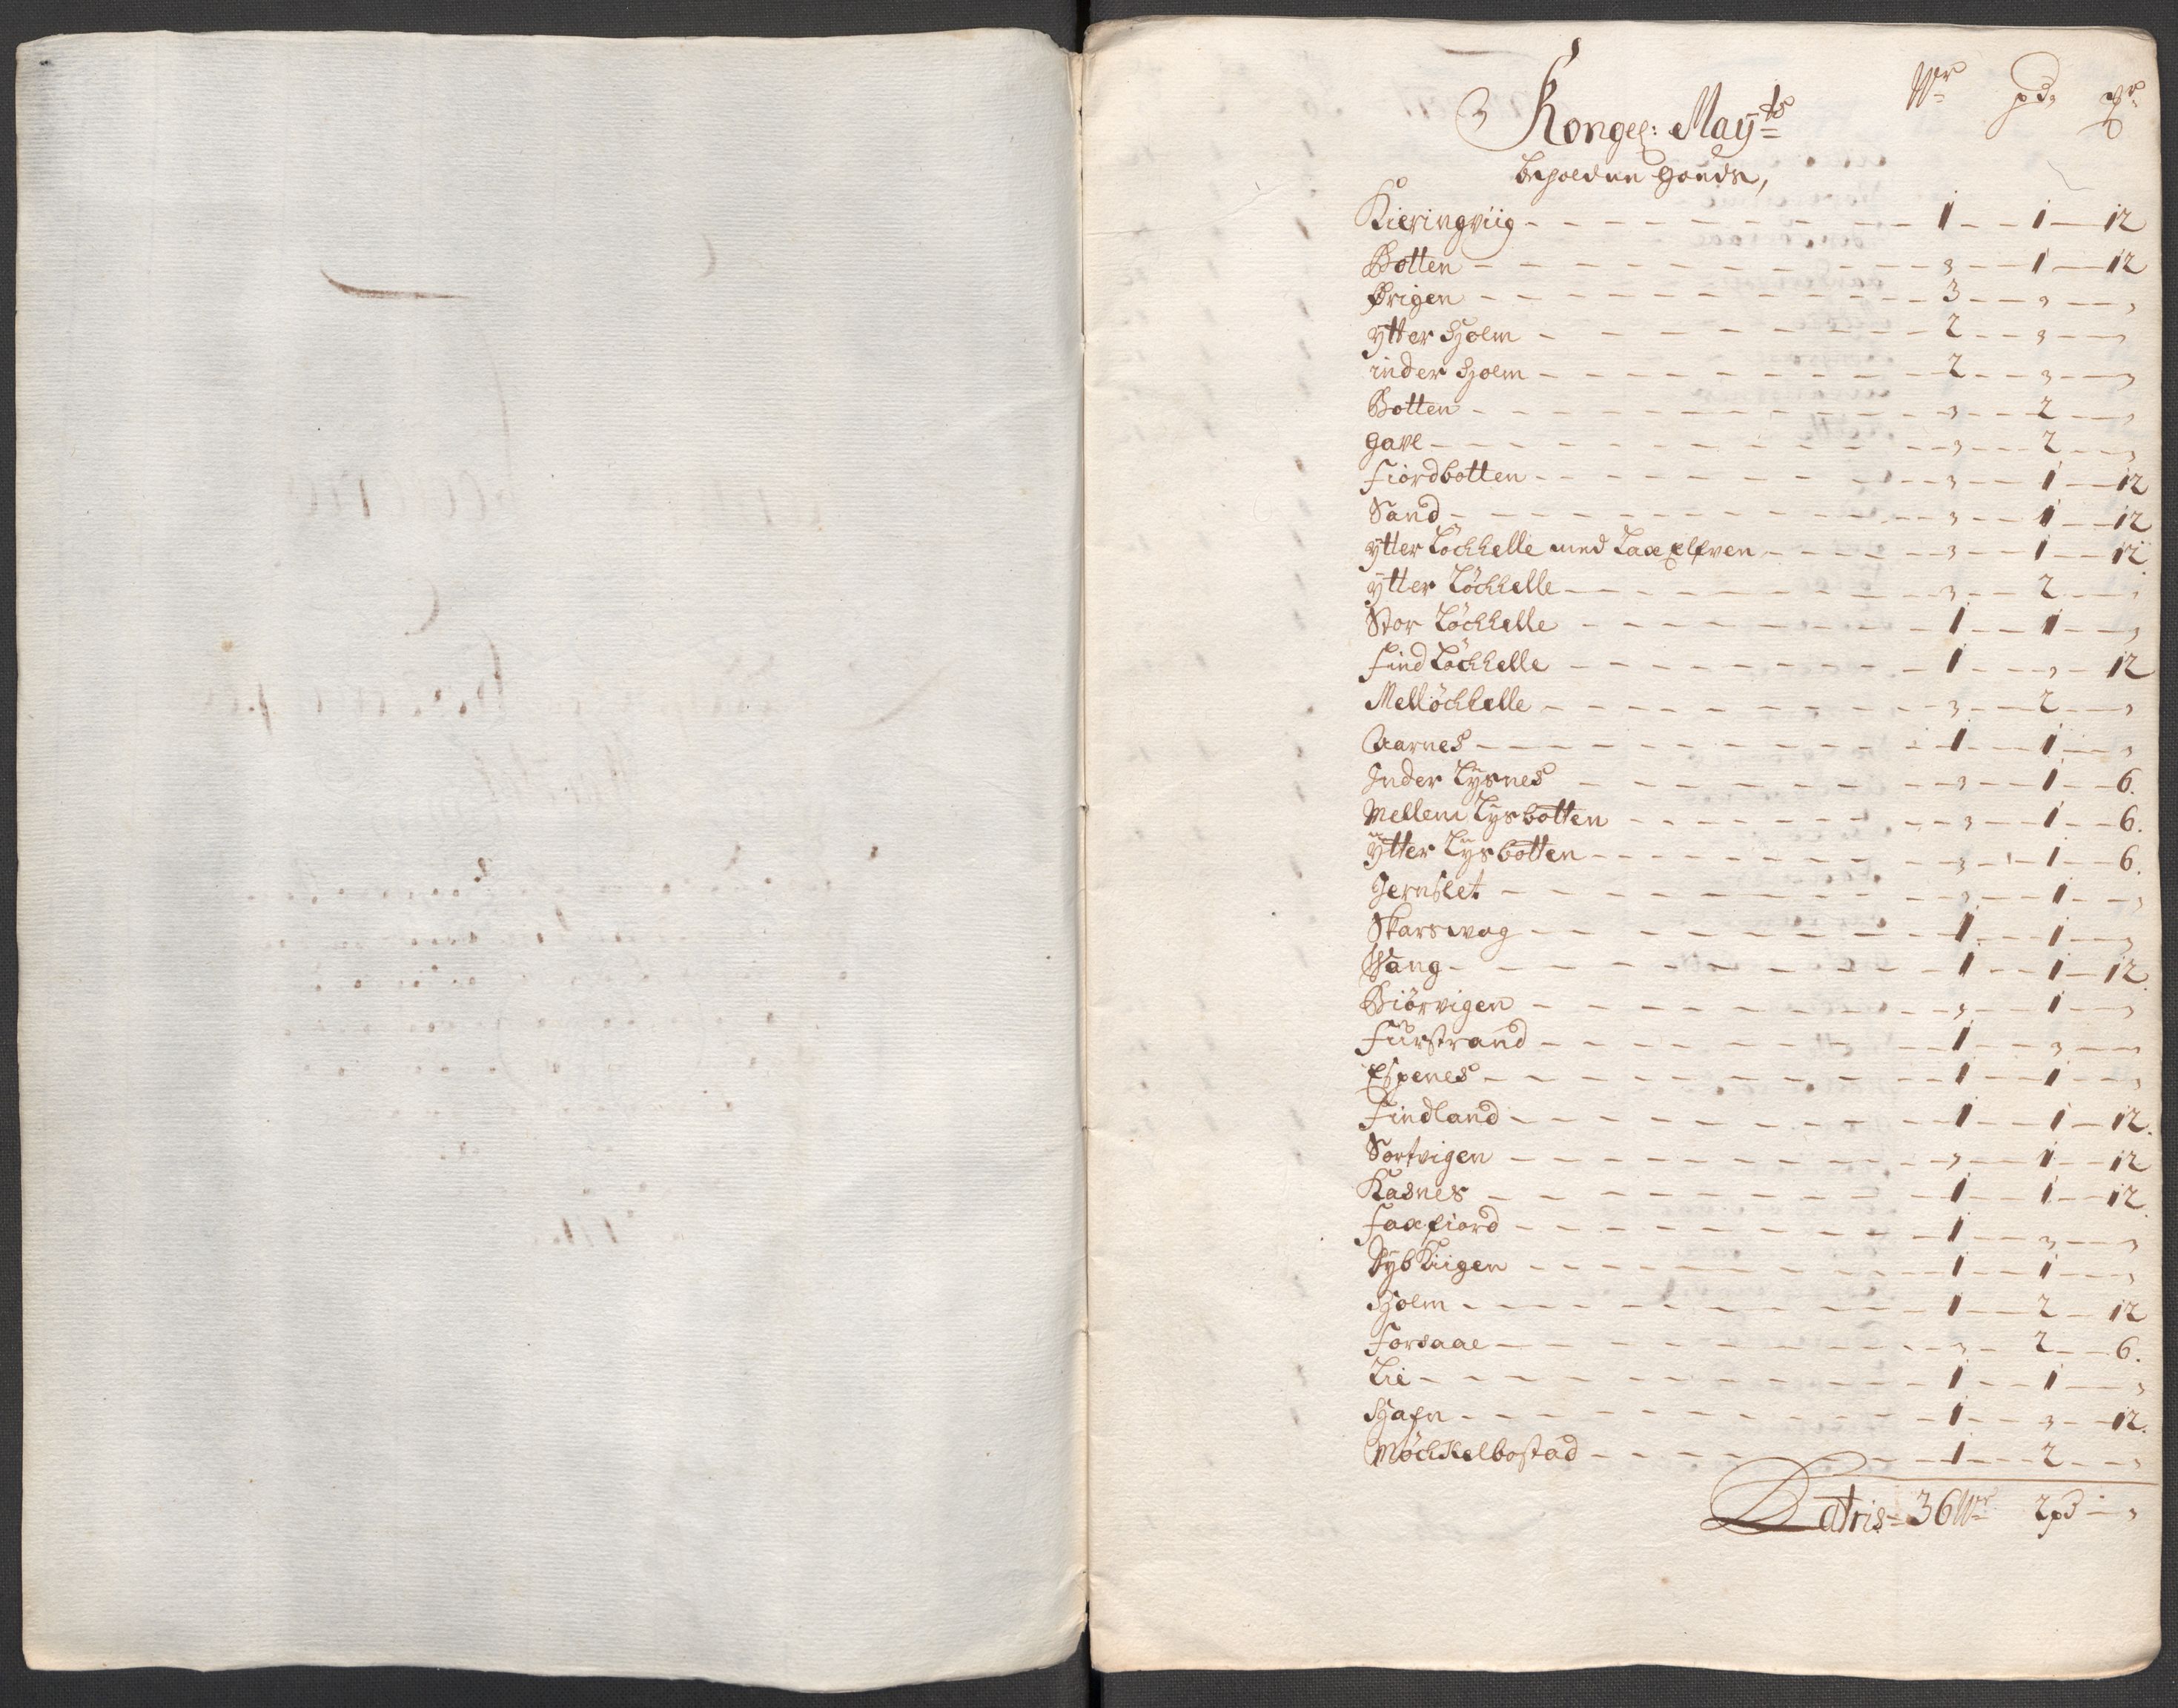 Wr pd, ℔r
Kongel: Mayts
beholdne Goeds,
Kieringviig - 1 - 1 - 12
Botten - " - 1 - 12
Ørigen - 3 - " - "
ytter Holm - 2 - " - "
inder Holm - 2 - " - "
Botten - " - 2 - "
Gave - " - 2 - "
Fiordbotten - " - 1 - 12
Sand - " - 1 - 12
ytter Löchhelle med Laxelfven - " - 1 - 12
ytter Löchhelle - " - 2 - "
Stor Löchhelle - 1 - 1 - "
Find Löchhelle - 1 - " - 12
Mellöchhelle - " - 2 - "
Aarnes - 1 - 1 - "
Inder Lysnes - " - 1 - 6.
Mellem Lysbotten - " - 1 - 6.
ÿtter Lysbotten - " - 1 - 6.
Jernslet - " - 1 - "
Skarswog - 1 - 1 - "
Wang - 1 - 1 - 12.
Biörvigen - " - 1 - "
Furstrand - 1 - " - "
Espenes - 1 - 1 - "
Findland - 1 - 1 - 12.
Sortvigen - " - 1 - 12
Kasnes - 1 - 1 - 12.
Faxfiord - 1 - " - "
Dyb Kiigen - 1 - 1 - "
Holm - 1 - 2 - 12
Forsaae - " - 2 - 6.
Lie - 1 - 1 - "
Hafn - 1 - " - 12.
Möchkelbostad - 1 - 2 - "
Latris - 36 Wr 2 pd - "